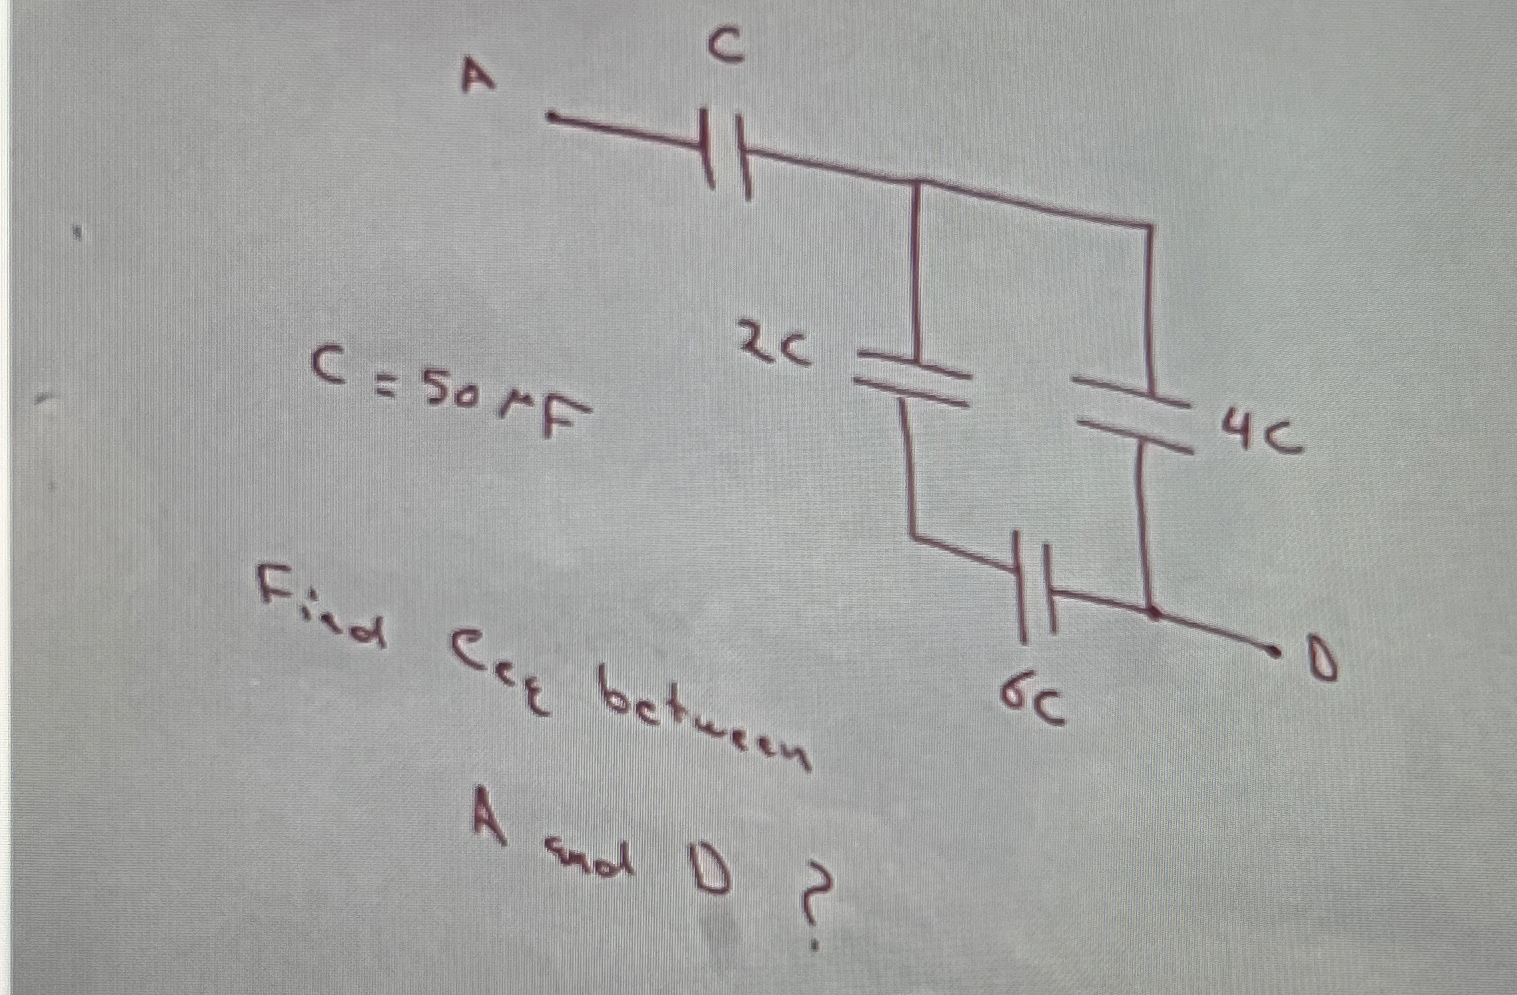 A
C
2C
4C
C = 50 μF
6C
D
Find Ceq between
A and D ?